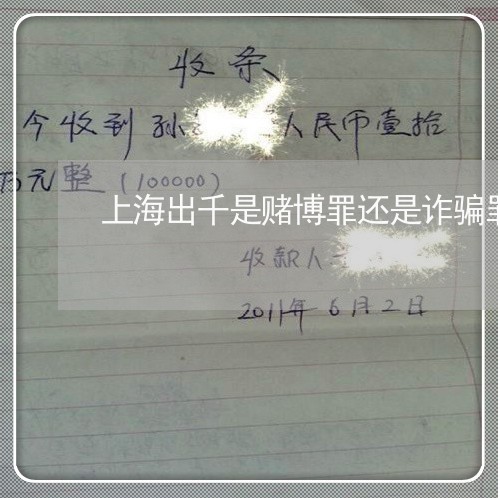 收条
今收到孙 人民币壹拾
万元整（100000）
上海出千是赌博罪还是诈骗罪
收款人
2011年6月2日